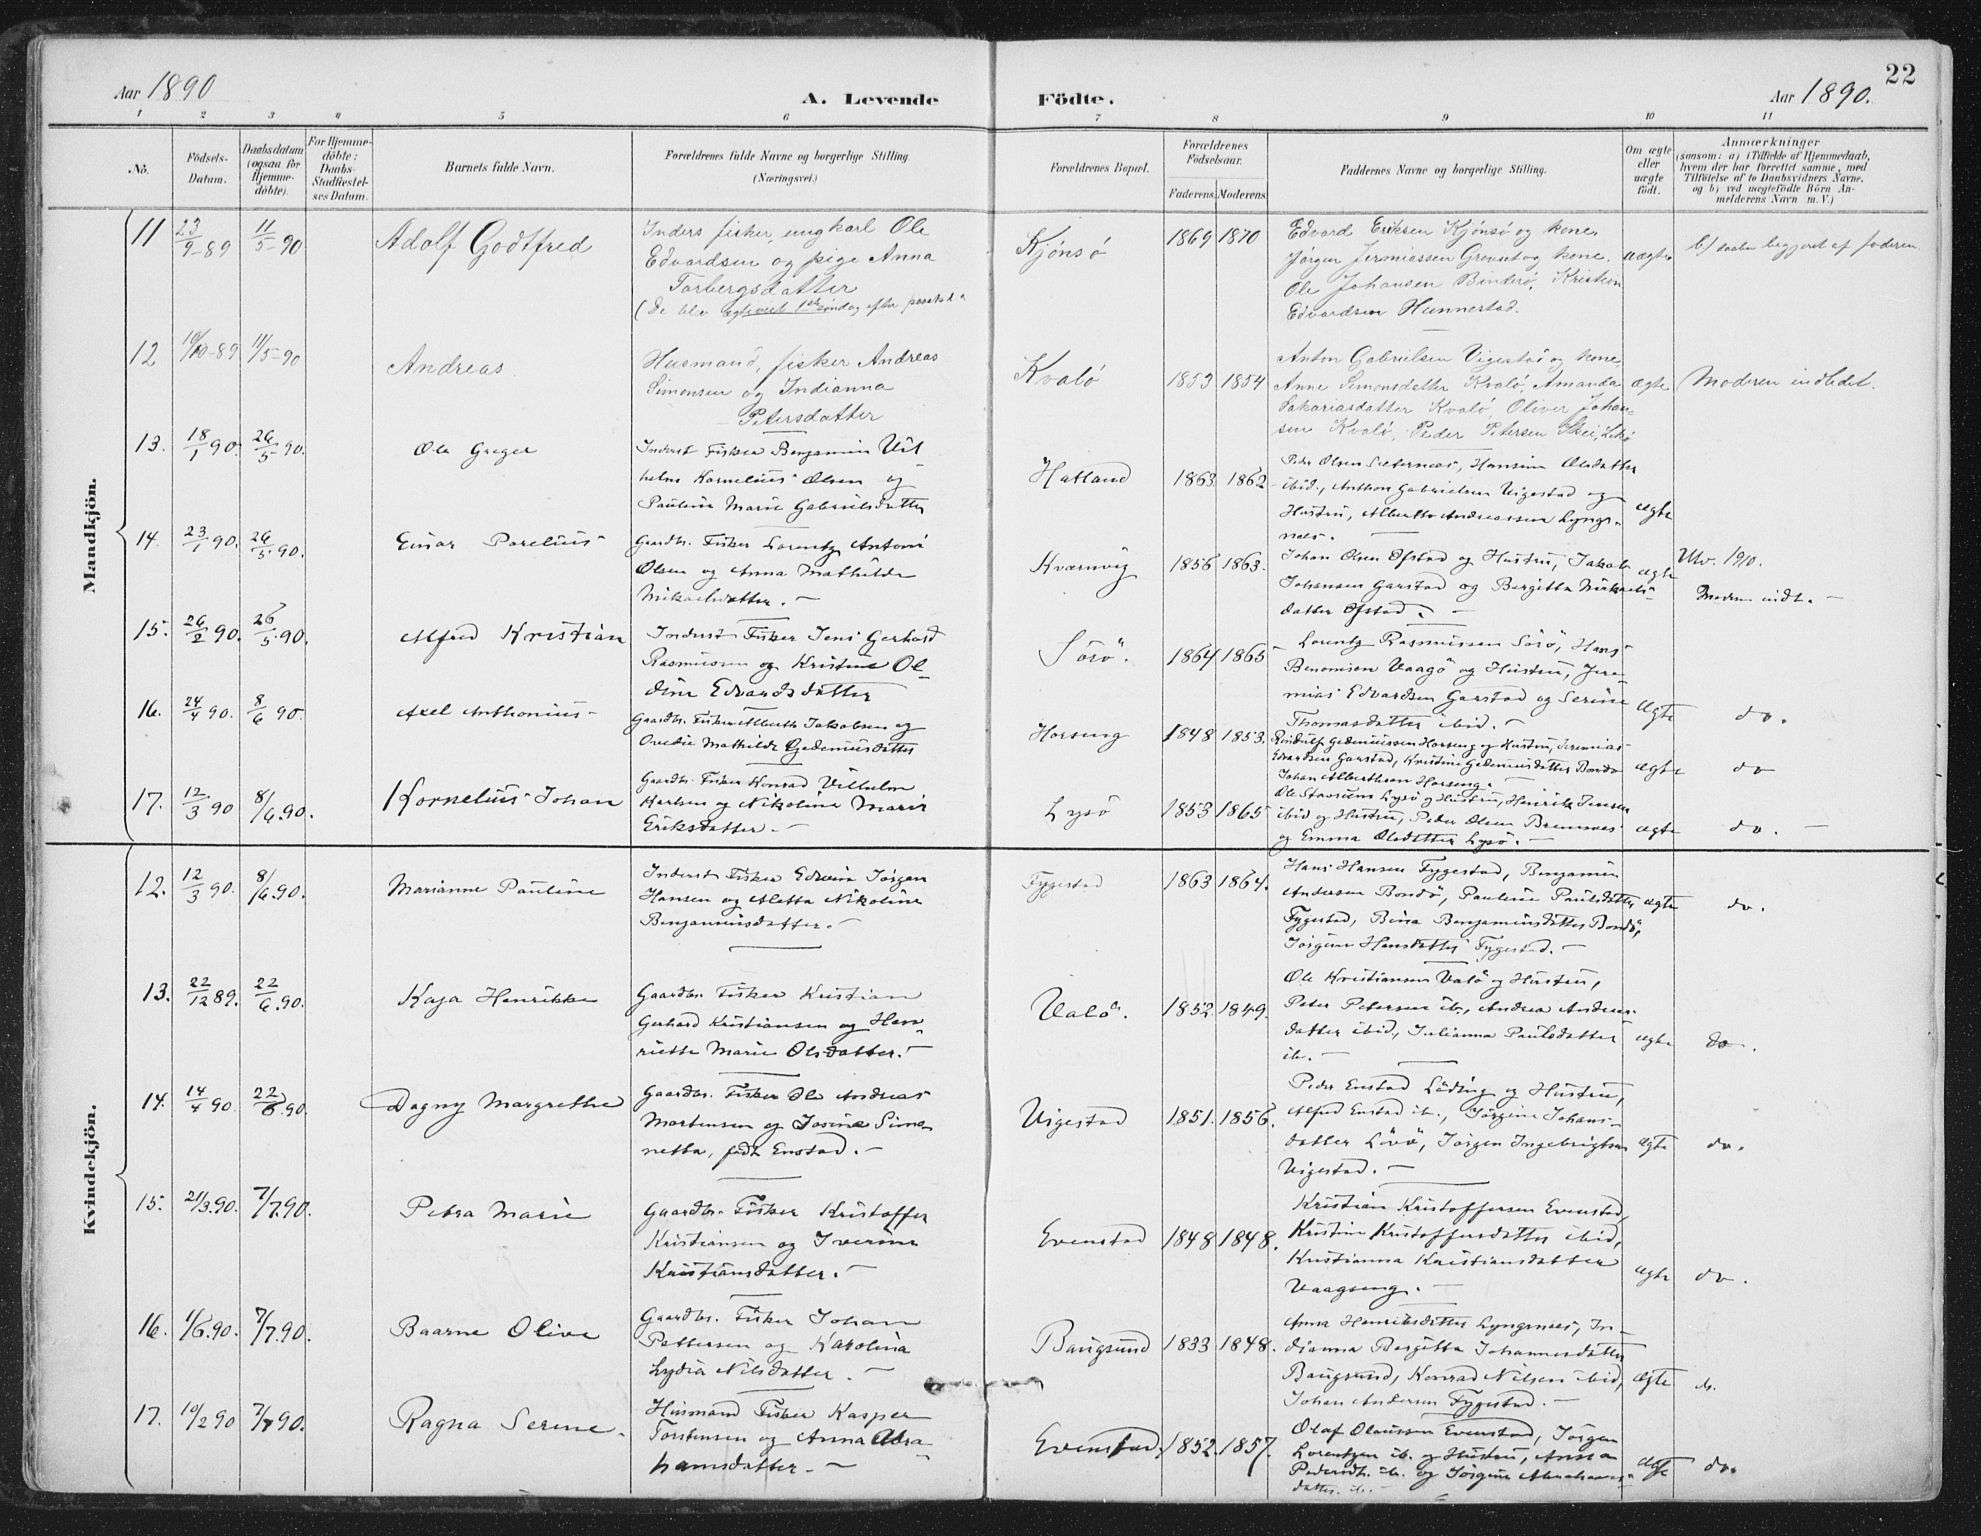 22
Aar 1890
A. Levende Födte.
Aar 1890.
1 2 3 4 5 6 7 8 9 10 11
No.
Födsels-Datum.
Daabsdatum (ogsaa for Hjemme-döbte).
For Hjemme-döbte: Daabs-Stadfæstel-ses Datum.
Barnets fulde Navn.
Forældrenes fulde Navne og borgerlige Stilling. (Næringsvei.)
Forældrenes Bopæl.
Forældrenes Födselsaar.
Faderens. Moderens.
Faddernes Navne og borgerlige Stilling.
Om ægte eller uægte födt.
Anmærkninger
(saasom: a) i Tilfælde af Hjemmedaab, hvem der har forrettet samme, med Tilföielse af to Daabsvidners Navne, og b) ved uægtefödte Börn An-melderens Navn m. V.)
Mandkjön.
11 23/9-89 11/5-90 Adolf Godtfred
Inders fisker, ungkarl Ole
Edvardsen og pige Anna
Torbergsdatter
Kjönsö 1869 1870
Edvard Eriksen Kjönsö og kone,
Jörgen Jermiassen Grevset og kone,
Ole Johansen Binderö, Kristian
Edvardsen Hunnestad.
uægte
b) daaben begjæret af faderen
12 10/10-89 11/5-90 Andreas
Husmand, fisker Andreas
Simonsen og Indianna
Petersdatter
Kvalö 1853 1854
Anton Gabrielsen Vigestad og kone,
Anne Simonsdatter Kvalö, Amanda
Sakariasdatter Kvalö, Oliver Johan-
sen Kvalö, Peder Petersen Skei, Lekö
ægte Moderen indledet.
13. 18/1 90. 26/5 90. Ole Greger
Inderst Fisker Benjamin Vil
helm Kornelius Olsen og
Pauline Marie Gabrielsdatter
Hatland 1863 1862
Peder Olsen Sæternæs, Hansine Olsdatter
ibid., Anthon Gabrielsen Vigestad og
Hustru, Albert Andreassen Lyngs-
næs. —
ægte
14. 23/1 90. 26/5 90. Einar Parelius
Gaardbr. Fisker Lorentz Antoni
Olsen og Anna Mathilde
Mikaelsdatter. —
Kværnvig 1856 1863.
Johan Olsen Öfstad og Hustru, Jakob
Johansen Garstad og Bergitta Mikaels-
datter Öfstad. —
ægte Utv. 1910.
Modren indt. —
15. 26/2 90. 26/5 90. Alfred Kristian
Inderst Fisker Jens Gerhard
Rasmussen og Kristine Ol-
dine Edvardsdatter
Sörö. 1864 1865
Lorentz Rasmussen Sörö, Hans
Benonisen Vaagö og Hustru, Jere-
mias Edvardsen Garstad og Serine
Thomasdatter ibid. —
ægte do.
16. 24/4 90. 8/6 90. Axel Anthonius
Gaardbr. Fisker Albert Jakobsen og
Ovedie Mathilde Gedeniusdatter
Horseng 1848 1853.
Rindulf Gedeniussen Horseng og Hustru, Jeremias
Edvardsen Garstad, Kristine Gedeniusdatter Bondö
Johan Alberthsen Horseng. —
ægte do
17. 12/3 90 8/6.90. Kornelius Johan
Gaardbr. Fisker Konrad Vilhelm
Karlsen og Nikoline Marie
Eriksdatter. —
Lysö 1853 1865
ibid og Hustru, Peder Olsen Bremnæs
og Emma Olsdatter Lysö. —
ægte do. —
Kvindekjön.
12. 12/3 90. 8/6.90. Marianne Pauline
Inderst Fisker Edvin Jörgen
Hansen og Aletta Nikoline
Benjaminsdatter. —
Fygestad 1863 1864.
Hans Hansen Fygestad, Benjamin
Andersen Bondö, Pauline Paulsdatter
Fygestad, Bina Benjaminsdatter Bondö,
Jörgine Hansdatter Fygestad. —
ægte do.
13. 22/12 89. 22/6.90. Kaja Henrikke
Gaardbr. Fisker Kristian
Gerhard Kristiansen og Hen-
riette Marie Olsdatter. —
Valö. 1852. 1849.
Ole Kristiansen Valö og Hustru,
Peter Petersen ib., Andrea Andreas-
datter ibid, Julianna Paulsdatter
ib. —
ægte do.
14. 14/4 90. 22/6.90. Dagny Margrethe
Gaardbr. Fisker Ole Andreas
Mortensen og Josine Simo-
netta, född Enstad. —
Vigestad 1851. 1856.
Peder Enstad Löding og Hustru,
Alfred Enstad ib., Jörgine Johans-
datter Lövö, Jörgen Ingebrigtsen
Vigestad. —
ægte do.
15. 21/3.90. 7/7.90. Petra Marie
Gaardbr. Fisker Kristoffer
Kristiansen og Iverine
Kristiansdatter. —
Evenstad 1848 1848.
Kristian Kristoffersen Evenstad,
Kristine Kristoffersdatter ibid,
Kristianna Kristiansdatter
Vaagseng. —
ægte do.
16. 1/6.90. 7/7.90. Baarne Olive
Gaardbr. Fisker Johan
Pettersen og Karolina
Lydia Nilsdatter. —
Baugsund 1833 1848.
Anna Henriksdatter Lyngsnæs, In-
dianna Bergitta Johannesdatter
Baugsund, Konrad Nilsen ibid,
Johan Andersen Fygestad. —
ægte do.
17. 10/2 90 7/7 90. Ragna Serine.
Husmand Fisker Kasper
Torstensen og Anna Abra
hamsdatter. —
Evenstad. 1852. 1857.
Olaf Olausson Evenstad, Jörgen
Lorentzen ib. og Hustru, Anna
Pedersdt. ib. og Jörgine Abrahams-
datter ib. —
ægte do.